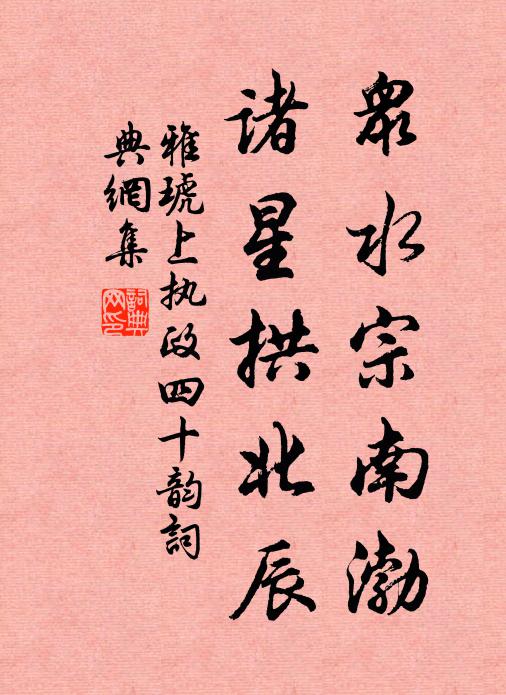 眾水宗南渤
诸星拱北辰
雅琥上执政四十韵詞
典網集
詞典網印